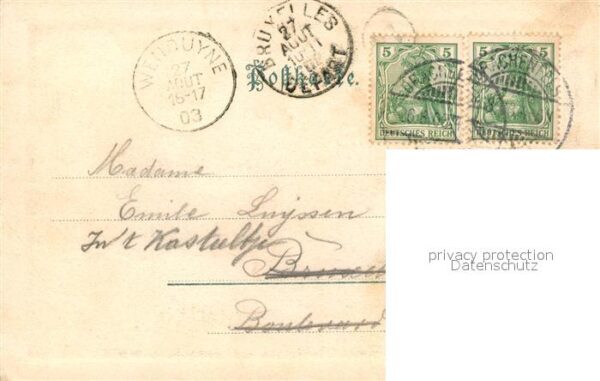 WENDUYNE
27
AOUT
16-17
03
BRUXELLES
27
AOUT
10-11
DEPART
Postkarte.
5 5 5 5
DEUTSCHES REICH DEUTSCHES REICH
Madame
Emile Luyssen
In't Kasteeltje
Boulevard
privacy protection
Datenschutz